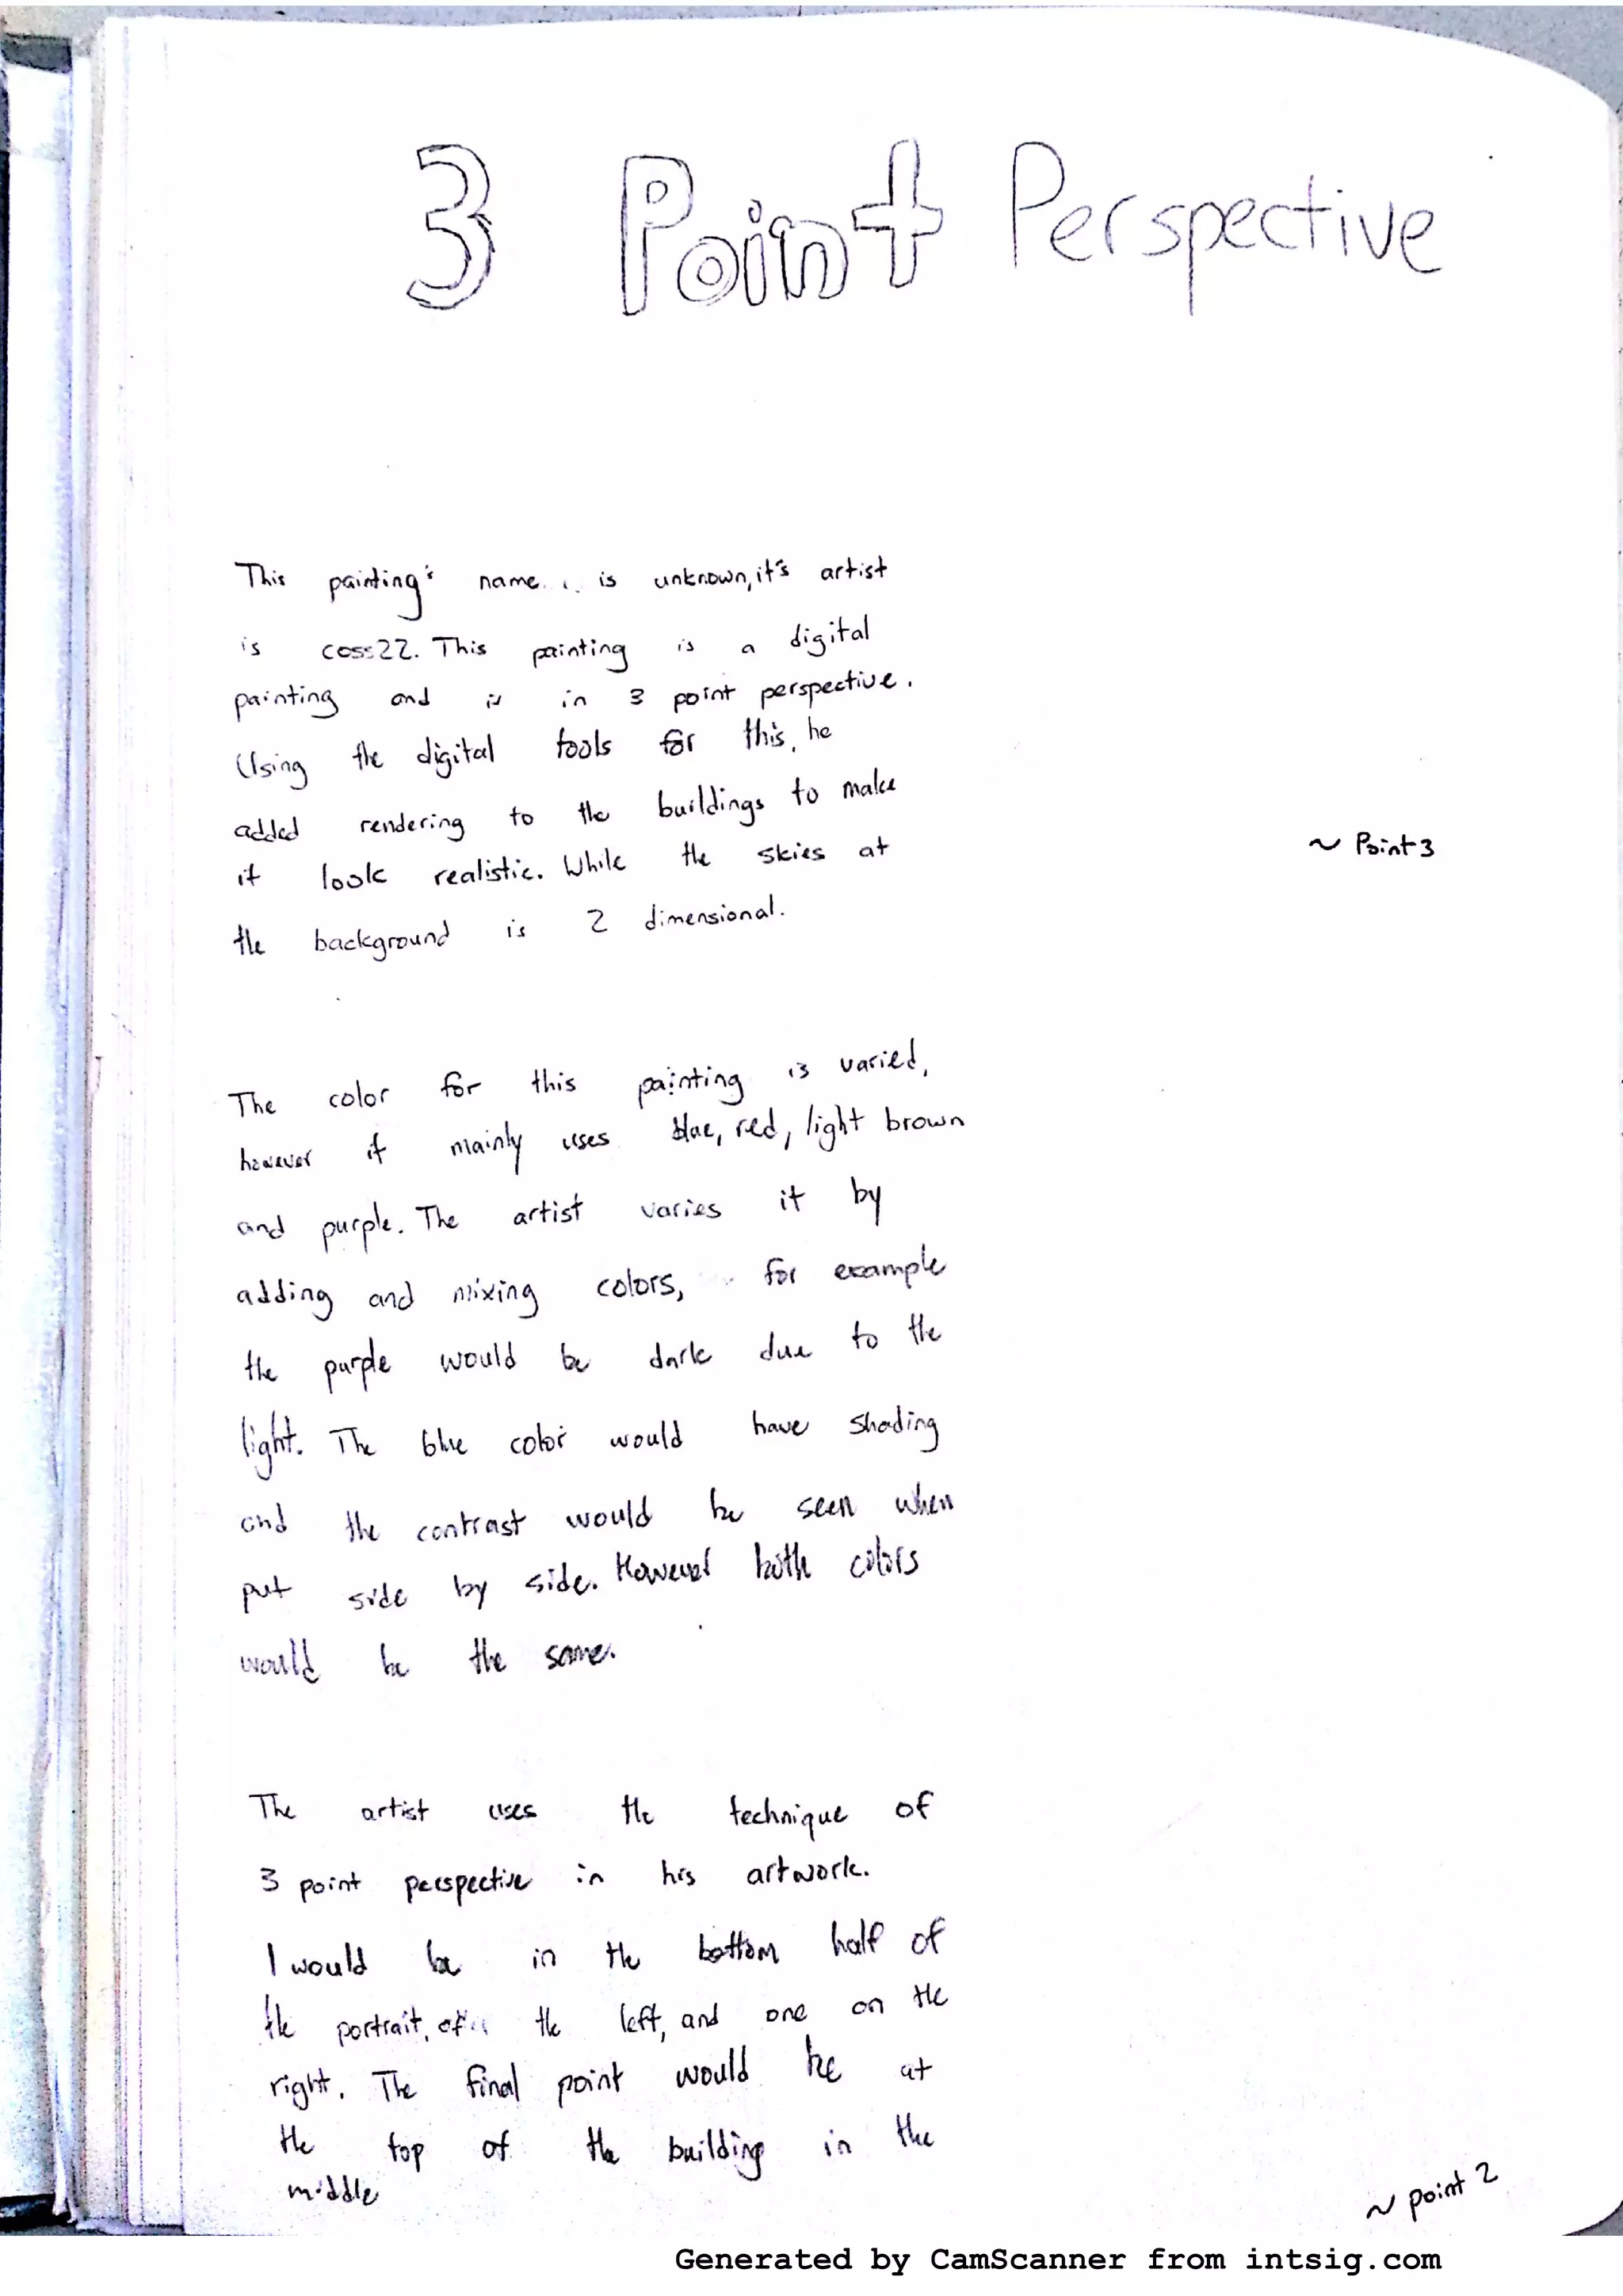 3 Point Perspective
This painting's name is unknown, it's artist
is coss22. This painting is a digital
painting and is in 3 point perspective.
Using the digital tools for this, he
added rendering to the buildings to make
it look realistic. While the skies at
the background is 2 dimensional.
~ Point 3
The color for this painting is varied,
however it mainly uses blue, red, light brown
and purple. The artist varies it by
adding and mixing colors, for example
the purple would be dark due to the
light. The blue color would have shading
and the contrast would be seen when
put side by side. However both colors
would be the same.
The artist uses the technique of
3 point perspective in his artwork.
I would be in the bottom half of
the portrait, the left, and one on the
right. The final point would be at
the top of the building in the
middle
~ point 2
Generated by CamScanner from intsig.com